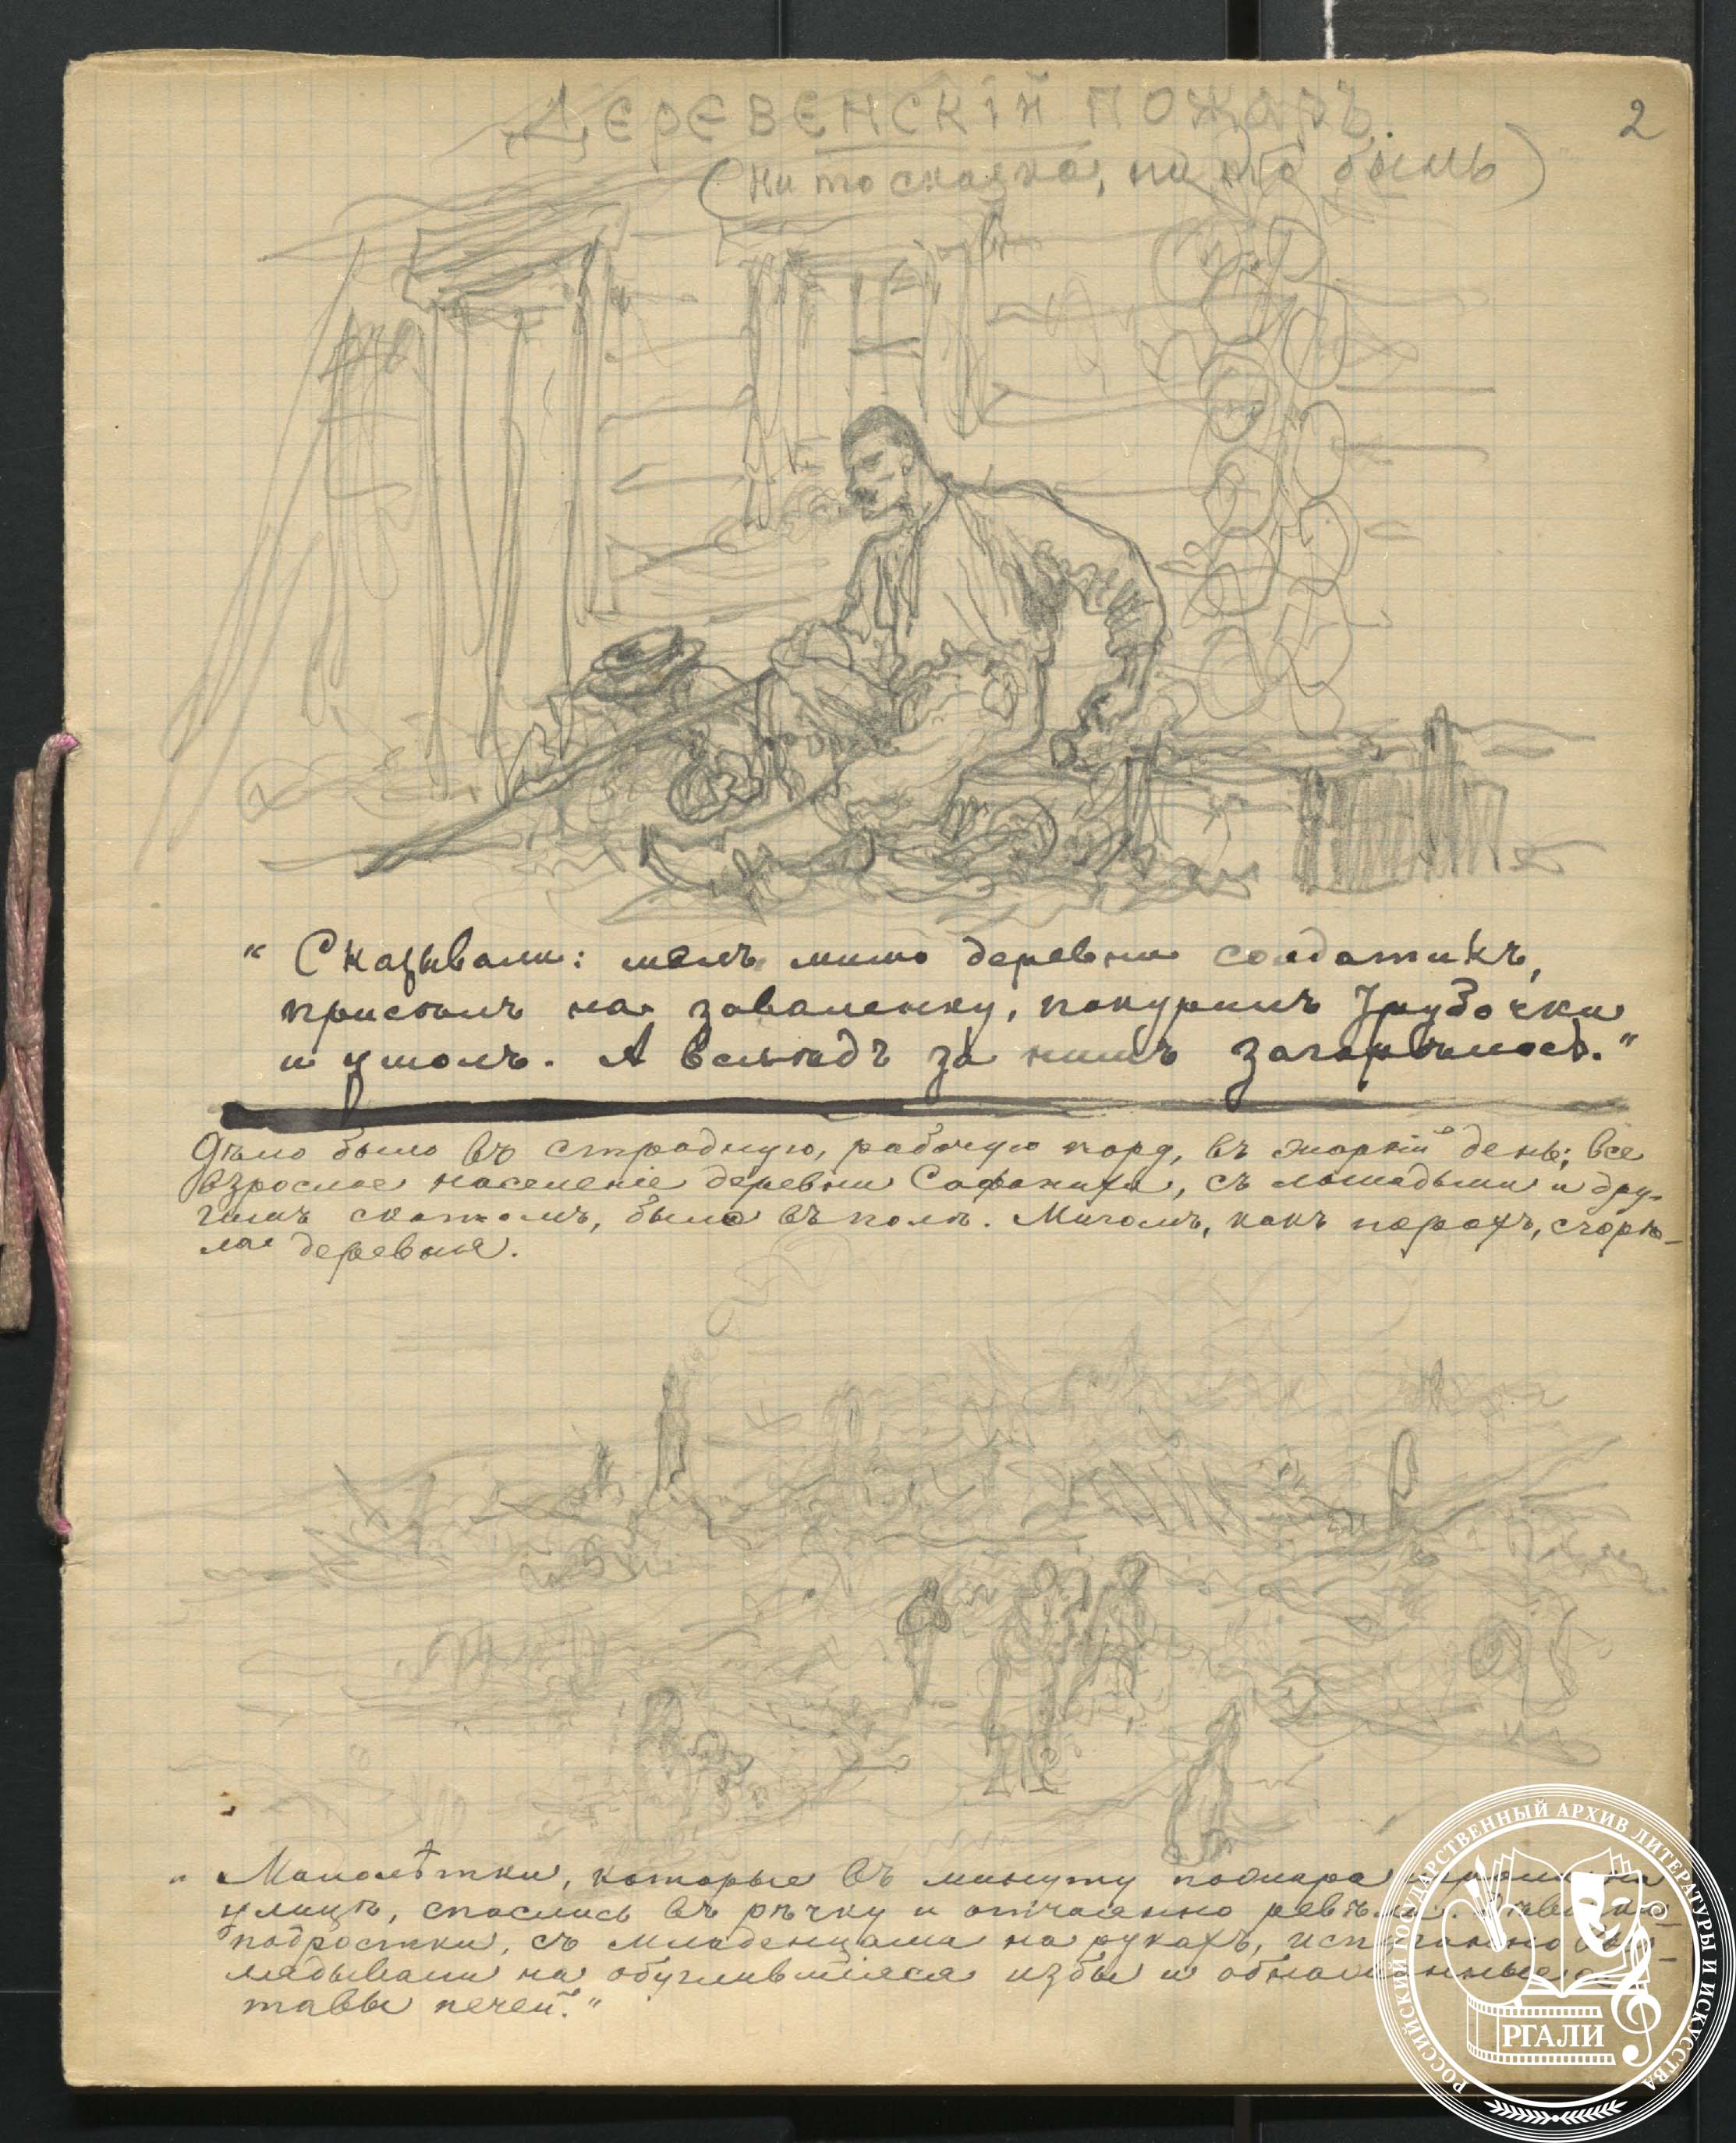 ДЕРЕВЕНСКІЙ ПОЖАРЪ.
2
(ни то сказка, ни то быль)
" Сказывали: шелъ мимо деревни солдатикъ,
присѣлъ на заваленку, покурилъ трубочки
и ушолъ. А вслѣдъ за нимъ загорѣлось."
Дѣло было въ страдную, рабочую пору, въ жаркій день; все
взрослое населеніе деревни Сафаниха, съ лошадьми и дру-
гимъ скотомъ, было въ полѣ. Мигомъ, какъ порохъ, сгорѣ-
ла деревня.
" Малолѣтки, которые въ минуту пожара играли на
улицѣ, спаслись въ рѣчку и отчаянно ревѣли. Дѣвочки
подростки, съ младенцами на рукахъ, испуганно
глядывали на обуглившіяся избы и обнаженные ос-
тавы печей."
РОССИЙСКИЙ ГОСУДАРСТВЕННЫЙ АРХИВ ЛИТЕРАТУРЫ И ИСКУССТВА
РГАЛИ